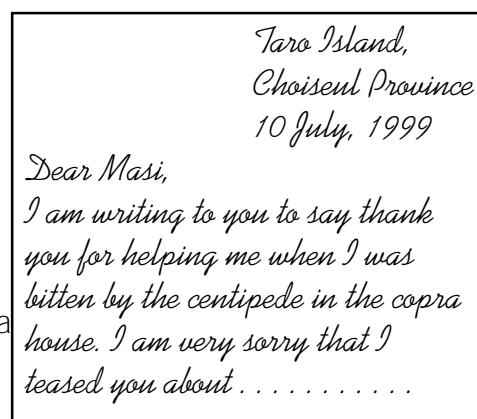 Taro Island,
Choiseul Province
10 July, 1999
Dear Masi,
I am writing to you to say thank
you for helping me when I was
bitten by the centipede in the copra
house. I am very sorry that I
teased you about . . . . . . . . . . .
a